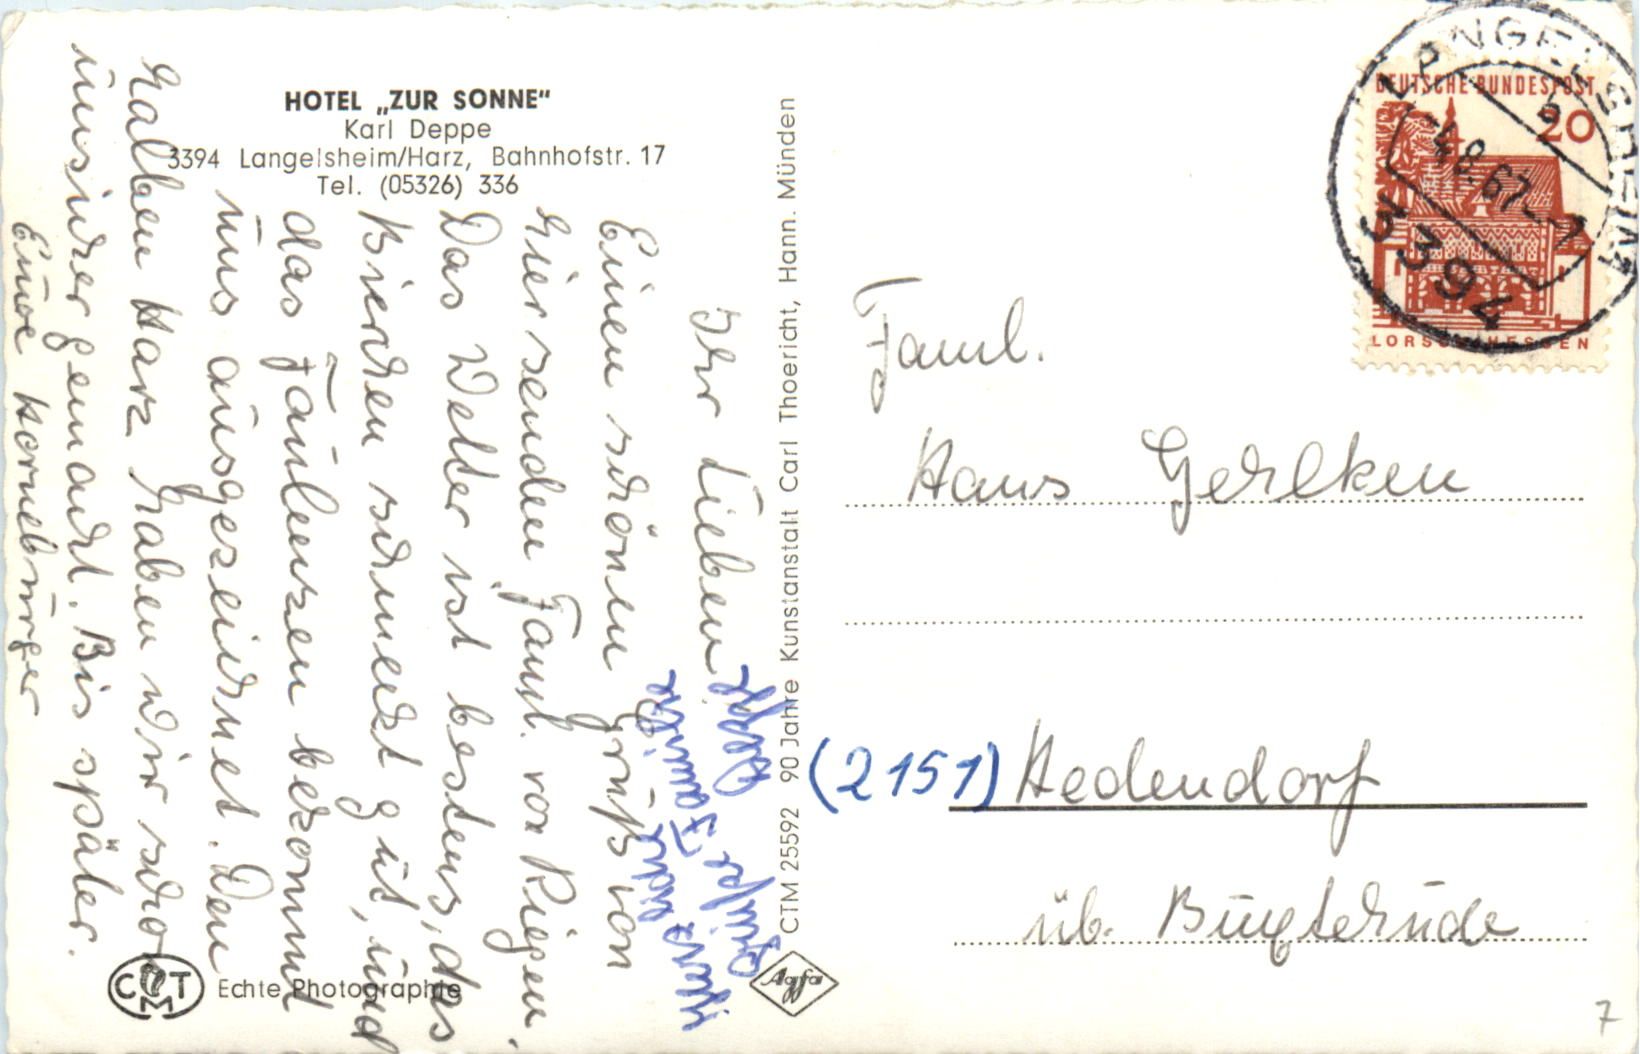 HOTEL „ZUR SONNE"
Karl Deppe
3394 Langelsheim/Harz, Bahnhofstr. 17
Tel. (05326) 336
Ihr Lieben!
Einen schönen Gruß von
hier senden Faml. von Riegen.
Das Wetter ist bestens, das
Bierchen schmeckt gut, und
das Faulenzen bekommt
uns ausgezeichnet. Den
halben Harz haben wir schon
unsicher gemacht. Bis später.
Eure Horneburger
Herzliche
Grüße Familie
Deppe
CTM 25592 90 Jahre Kunstanstalt Carl Thoericht, Hann. Münden
CTM
Echte Photographie
Agfa
LANGELSHEIM
3394
-4.8.67--7
a
DEUTSCHE BUNDESPOST
20
LORSCH/HESSEN
Faml.
Hans Gerlken
(2151) Hedendorf
üb. Buxtehude
7